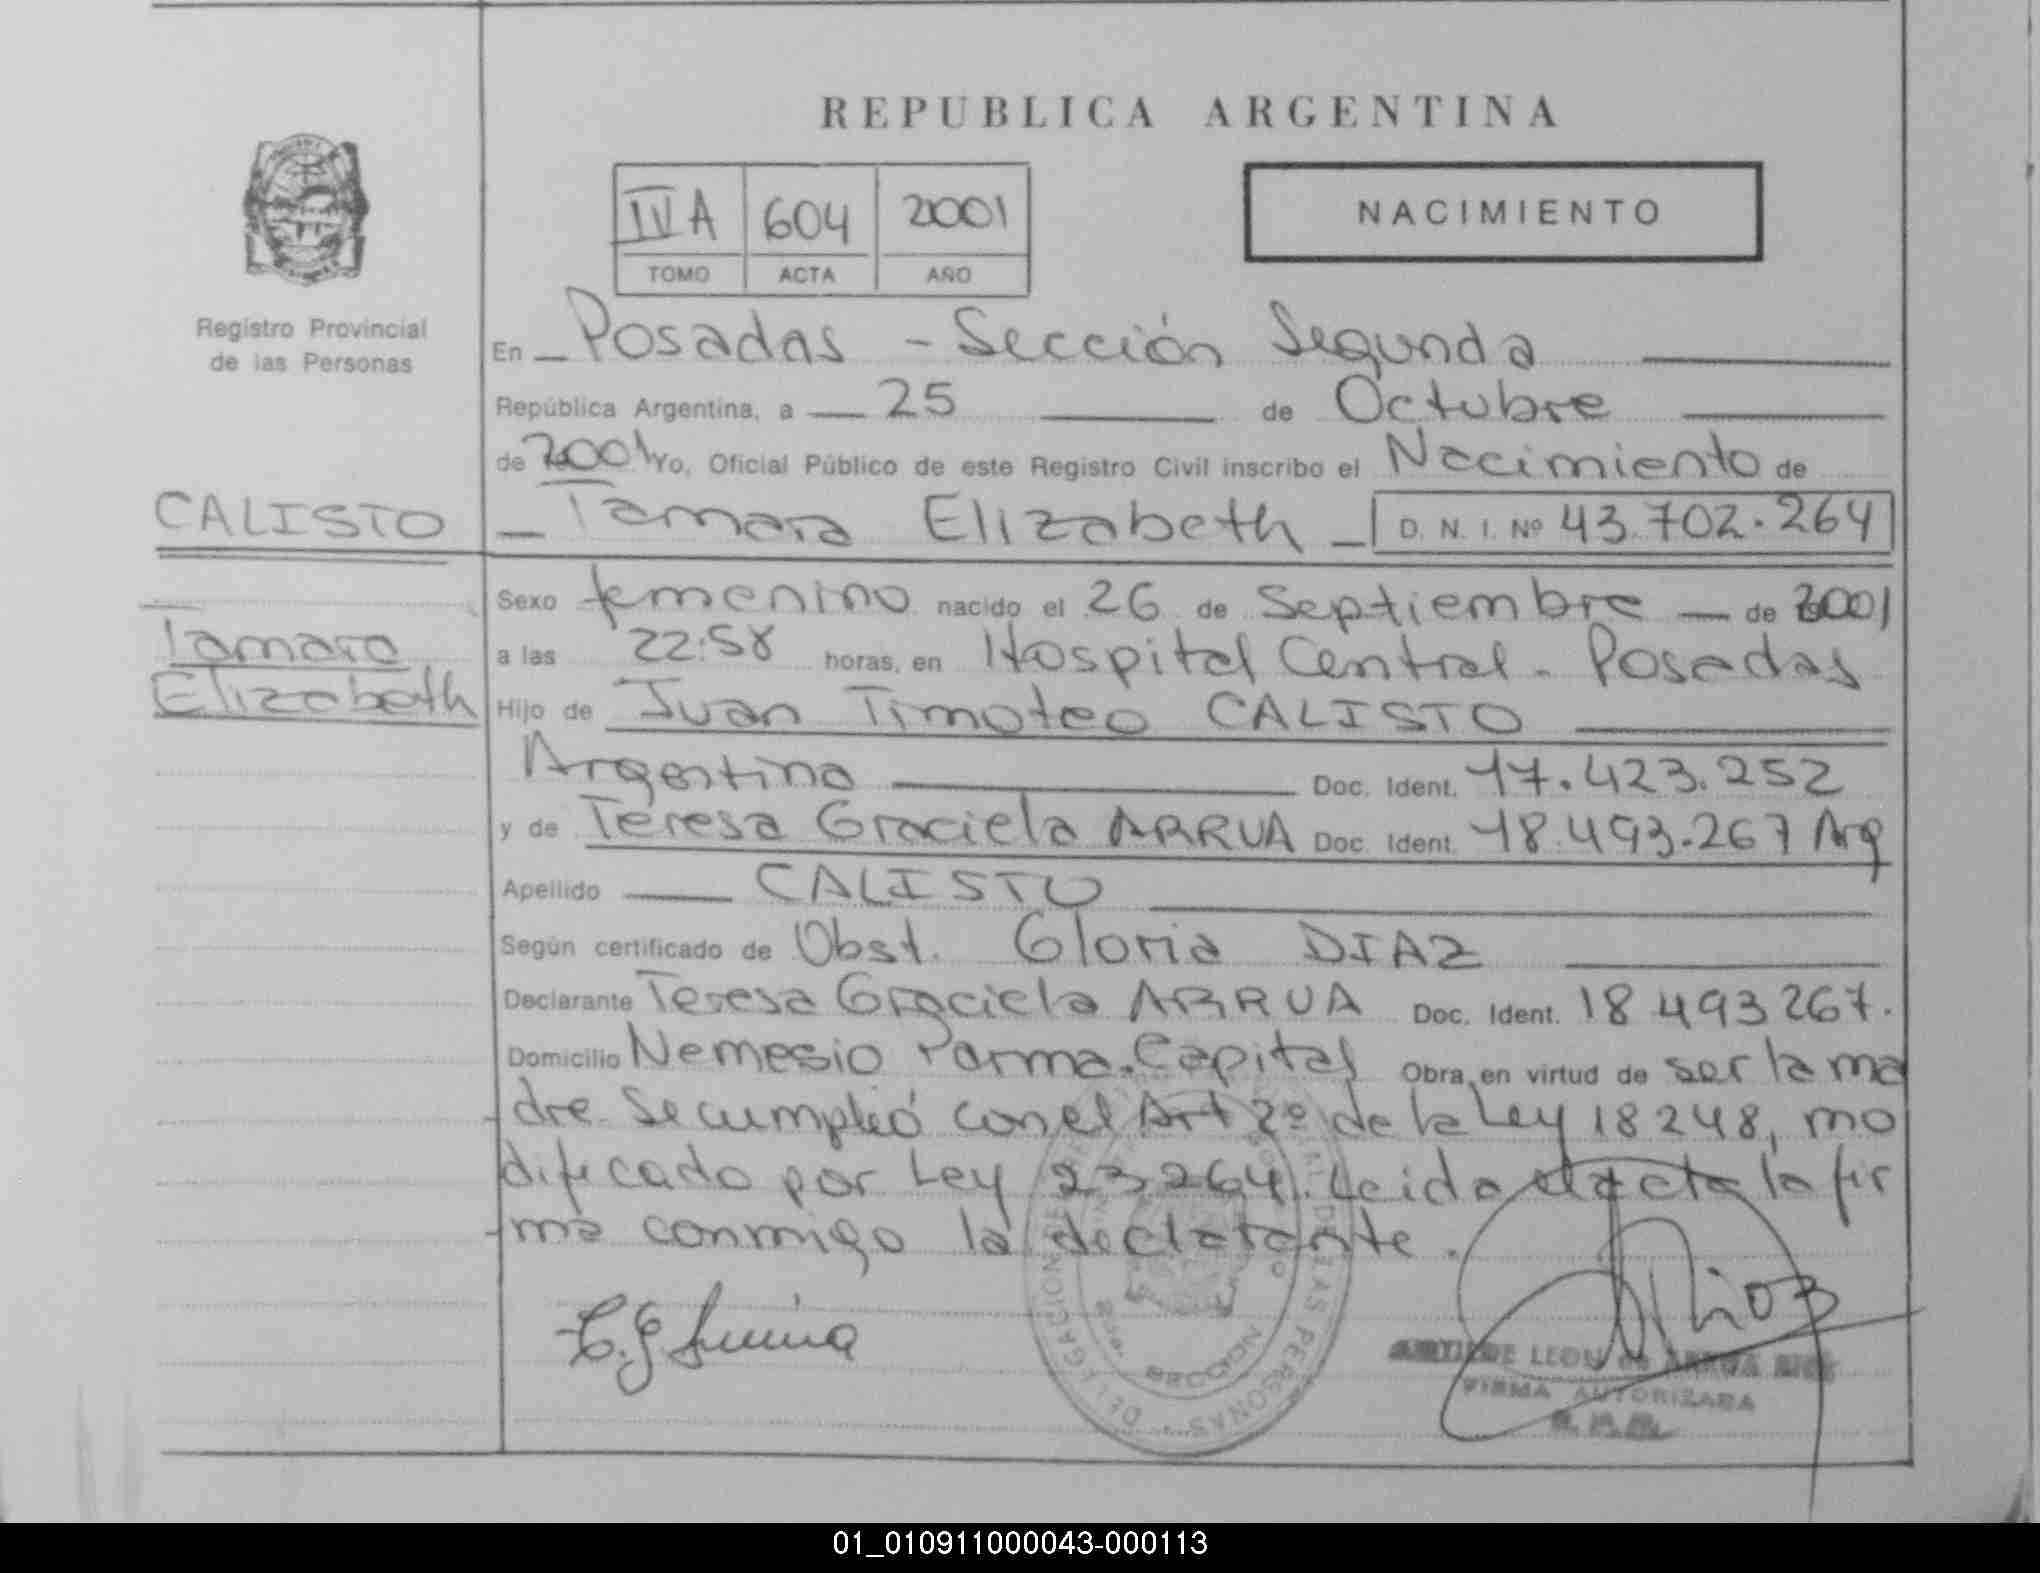 REPUBLICA ARGENTINA
IVA 604 2001
TOMO ACTA AÑO
NACIMIENTO
Registro Provincial
de las Personas
En Posadas - Sección Segunda
República Argentina, a 25 de Octubre
de 2001 Yo, Oficial Público de este Registro Civil inscribo el Nacimiento de
CALISTO
Tamara Elizabeth D. N. I. Nº 43.702.264
Tamara
Elizabeth
Sexo femenino nacido el 26 de Septiembre de 2001
a las 22:58 horas, en Hospital Central - Posadas
Hijo de Juan Timoteo CALISTO
Argentino Doc. Ident. 17.423.252
y de Teresa Graciela ARRUA Doc. Ident. 18.493.267 Arg
Apellido CALISTO
Según certificado de Obst. Gloria DIAZ
Declarante Teresa Graciela ARRUA Doc. Ident. 18 493 267.
Domicilio Nemesio Parma. Capital Obra, en virtud de ser la ma
dre. Se cumplió con el Art 2º de la Ley 18248, mo
dificado por Ley 23264. Leida el acta la fir
ma conmigo la declarante.
DE LAS PERSONAS
SECCION
FIRMA AUTORIZADA
01_010911000043-000113